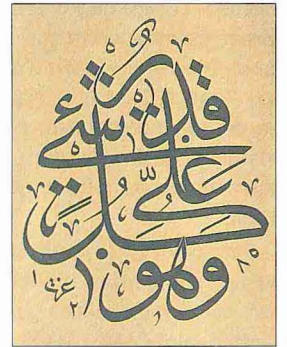 وَهُوَ عَلَىٰ كُلِّ شَيْءٍ قَدِيرٌ